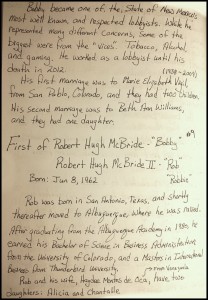 Bobby became one of the State of New Mexico's
most well known and respected lobbyists. While he
represented many different concerns, some of the
biggest were from the "vices". Tobacco, Alcohol,
and gaming. He worked as a lobbyist until his
death in 2002.
His first marriage was to Marie Elizabeth
from San Pablo, Colorado, and they had two children.
His second marriage was to Beth Ann Williams,
and they had one daughter.
First of Robert Hugh McBride - "Bobby" #9
Robert Hugh McBride II - "Rob"
"Robbie"
Born: Jan 8, 1962
Rob was born in San Antonio, Texas, and shortly
thereafter moved to Albuquerque, where he was raised.
After graduating from the Albuquerque Academy in 1980, he
earned his Bachelor of Science in Business Administration
from the University of Colorado, and a Masters in International
Business from Thunderbird University.
from Venezuela
Rob and his wife, Haydee Montes de Oca, have two
daughters: Alicia and Chantalle.